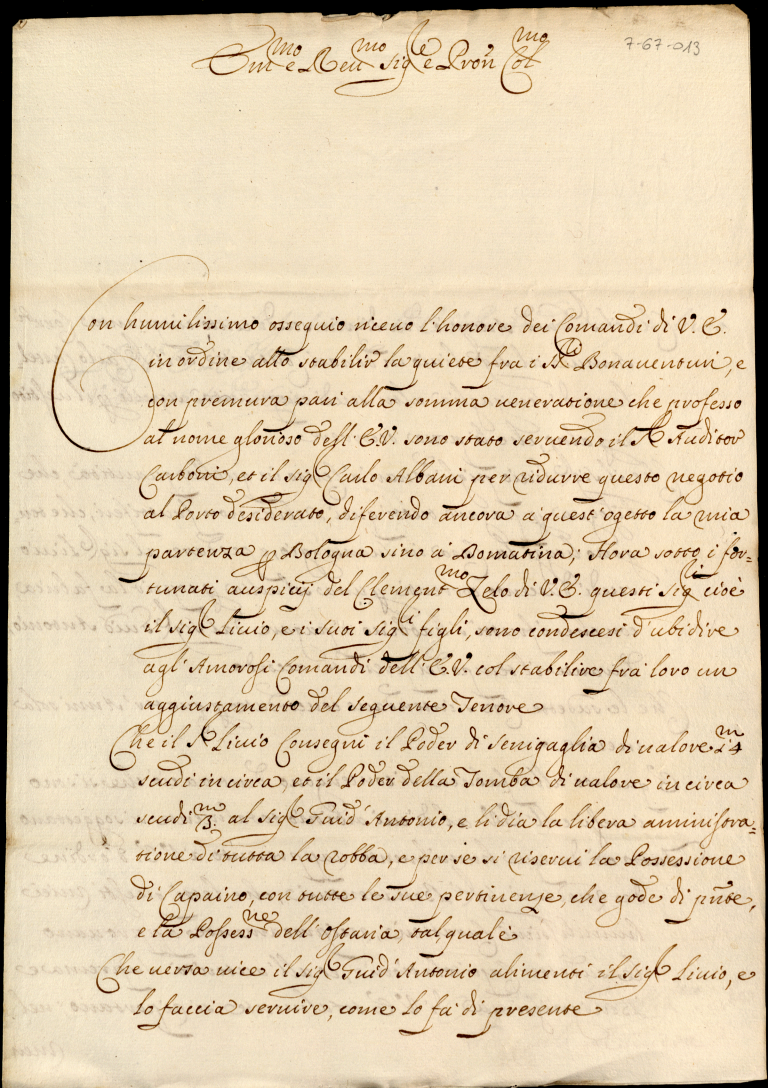 7-67-013
Em.mo e Reu.mo Sig.re e Pron Col.mo
Con humilissimo ossequio riceuo l'honore dei Comandi di V. E.
in ordine allo stabilir la quiete fra i SS.ri Bonauenturi, e
con premura pari alla somma ueneratione che professo
al nome glorioso dell' E.V. sono stato seruendo il S.r Auditor
Carboni, et il Sig.r Carlo Albani per ridurre questo negotio
al Porto desiderato, diferendo ancora a quest'ogetto la mia
partenza p Bologna sino a' Domatina; Hora sotto i for=
tunati auspicij del Clement.mo Zelo di V.E. questi Sig.ri cioè
il Sig.r Liuio, e i suoi Sig.ri figli, sono condescesi d'ubidire
agl'Amorosi Comandi dell' E.V. col stabilire fra loro un
aggiustamento del seguente Tenore
Che il S.r Liuio Consegni il Poder di Senigaglia di ualore m/14
scudi in circa, et il Poder della Tomba di ualore in circa
scudi m/3. al Sig.r Guid'Antonio, e li dia la libera aministra=
tione di tutta la robba, e per se si riserui la Possessione
di Capaino, con tutte le sue pertinenze, che gode di pñte,
e la Possess.ne dell' Ostaria tal quale
Che uersa uice il Sig.r Guid'Antonio alimenti il Sig.r Liuio, e
lo faccia seruire, come lo fa di presente